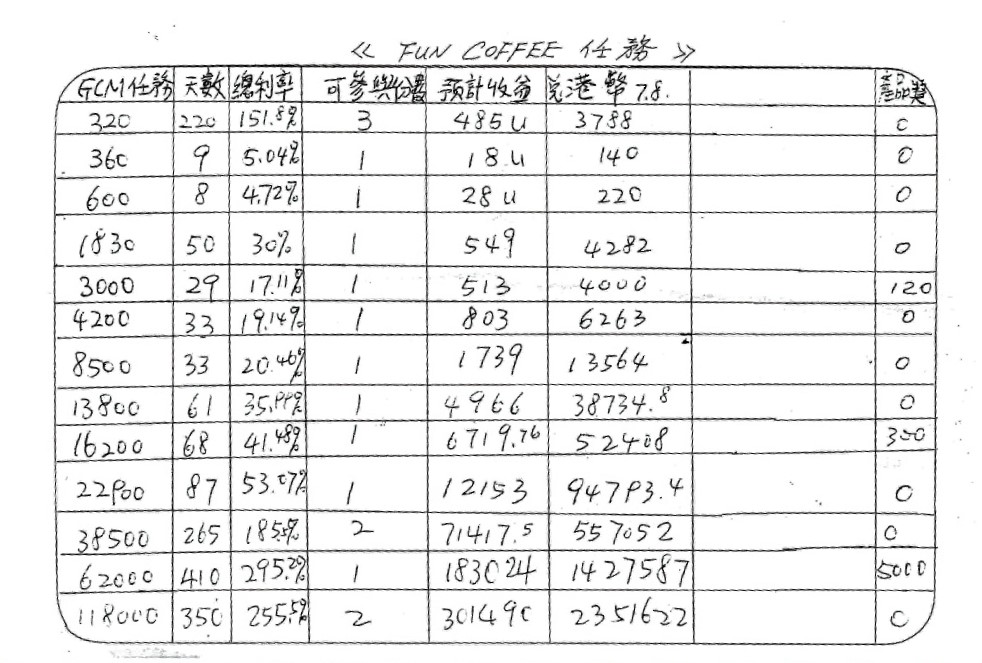 ≪ FUN COFFEE 任務 ≫
GCM任務 天數 總利率 可參與份數 預計收益 兌港幣 7.8. 產品獎
320 220 151.8% 3 485u 3788 0
360 9 5.04% 1 18.u 140 0
600 8 4.72% 1 28u 220 0
1830 50 30% 1 549 4282 0
3000 29 17.11% 1 513 4000 120
4200 33 19.14% 1 803 6263 0
8500 33 20.46% 1 1739 13564 0
13800 61 35.99% 1 4966 38734.8 0
16200 68 41.48% 1 6719.76 52408 300
22900 87 53.07% 1 12153 94793.4 0
38500 265 185.5% 2 71417.5 557052 0
62000 410 295.2% 1 183024 1427587 5000
118000 350 255.5% 2 301490 2351622 0